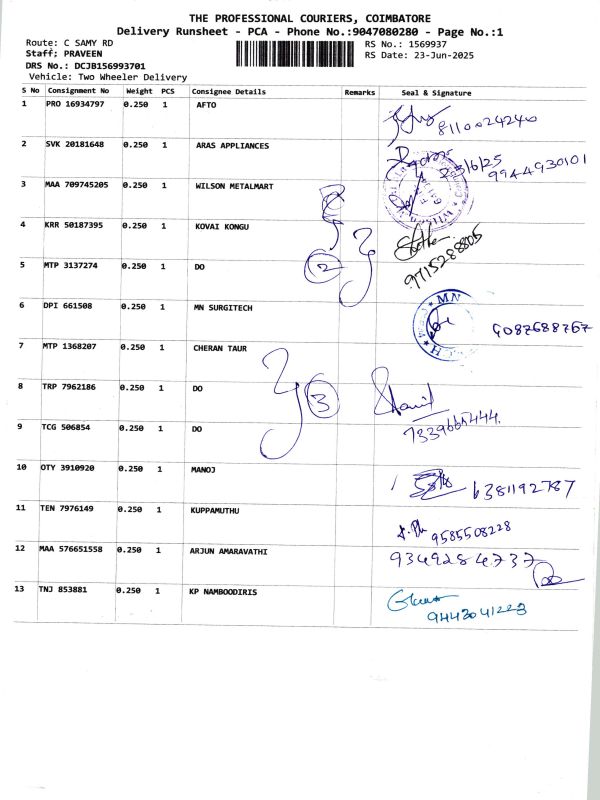 THE PROFESSIONAL COURIERS, COIMBATORE
Delivery Runsheet - PCA - Phone No.:9047080280 - Page No.:1
Route: C SAMY RD
Staff; PRAVEEN
DRS No.: DCJB156993701
Vehicle: Two Wheeler Delivery
RS No.: 1569937
RS Date: 23-Jun-2025
S No Consignment No Weight PCS Consignee Details Remarks Seal & Signature
1 PRO 16934797 0.250 1 AFTO 8110024240
2 SVK 20181648 0.250 1 ARAS APPLIANCES 23/6/25 9944930101
3 MAA 709745205 0.250 1 WILSON METALMART
4 KRR 50187395 0.250 1 KOVAI KONGU 9715288805
5 MTP 3137274 0.250 1 DO 2
6 DPI 661508 0.250 1 MN SURGITECH MN 9087688767
7 MTP 1368207 0.250 1 CHERAN TAUR
8 TRP 7962186 0.250 1 DO 3
9 TCG 506854 0.250 1 DO
10 OTY 3910920 0.250 1 MANOJ 6381192787
11 TEN 7976149 0.250 1 KUPPAMUTHU 9585508228
12 MAA 576651558 0.250 1 ARJUN AMARAVATHI 9349284737
13 TNJ 853881 0.250 1 KP NAMBOODIRIS 9443041223